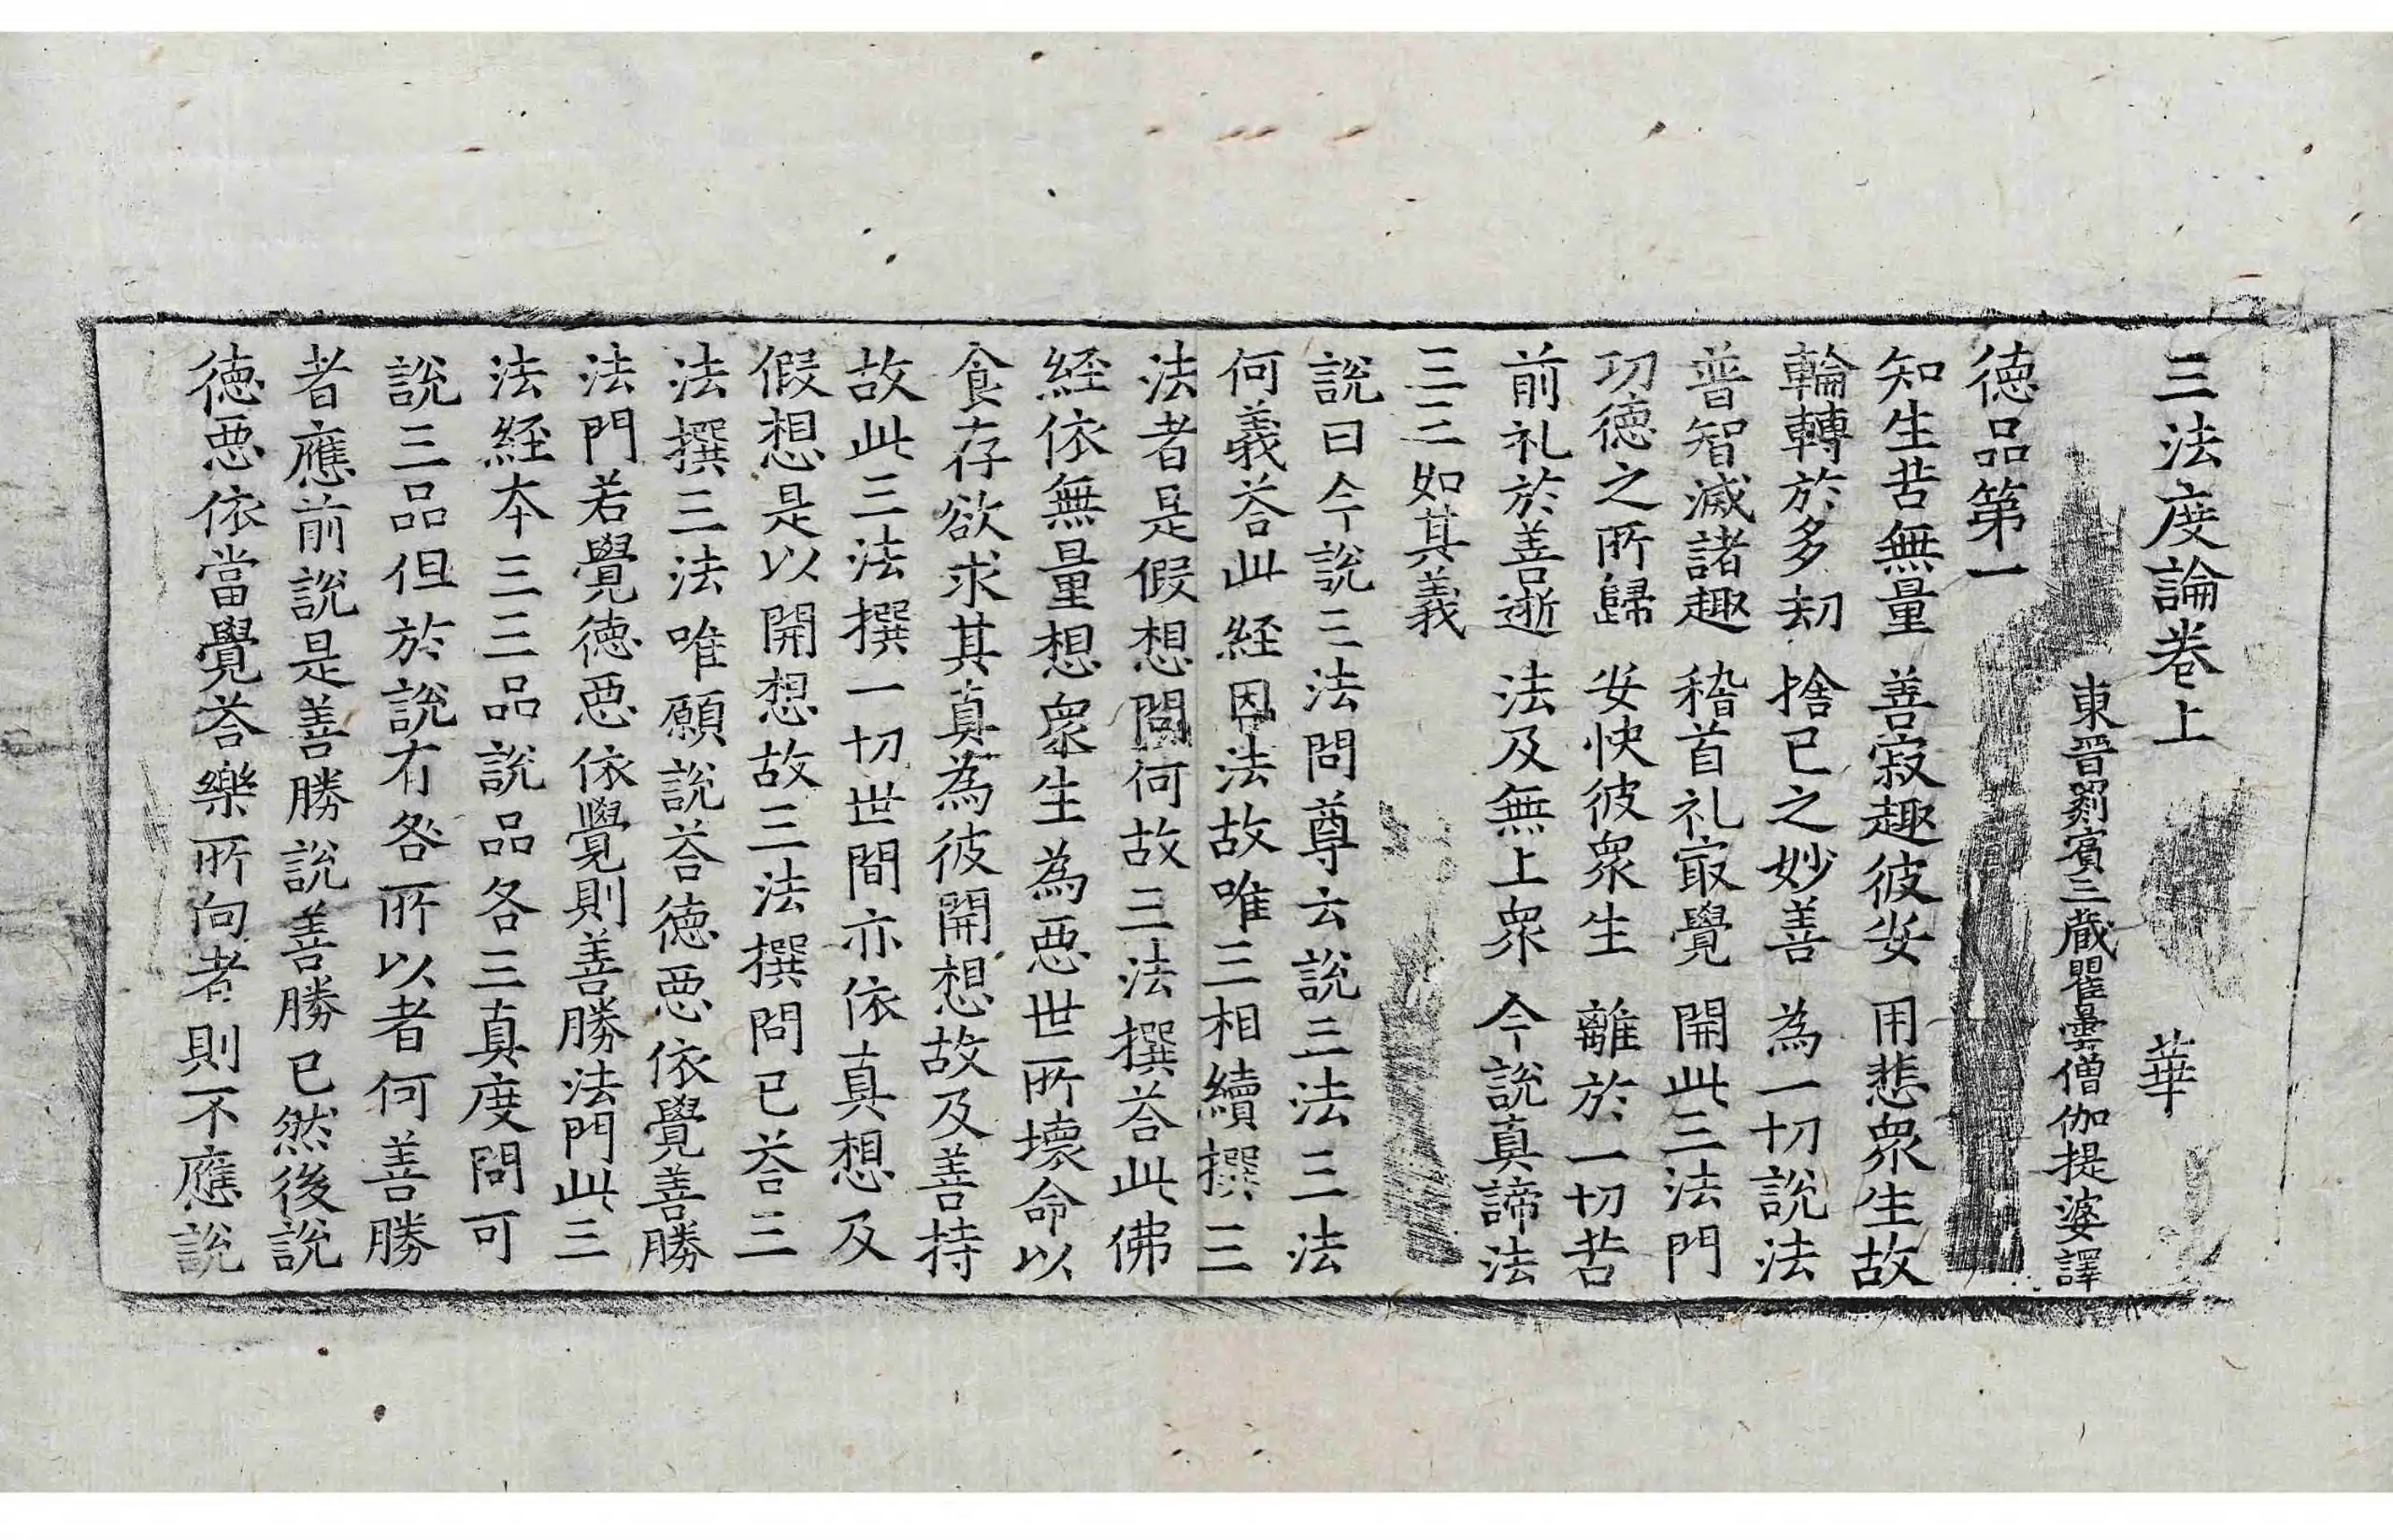 三法度論卷上 華
東晉罽賓三蔵瞿曇僧伽提婆譯
德品第一
知生苦無量 善寂趣彼安 用悲衆生故
輪轉於多刼 捨已之妙善 為一切說法
普智滅諸趣 稽首礼㝡覺 開此三法門
㓛德之所歸 安快彼衆生 離於一切苦
前礼於善逝 法及無上衆 今說真諦法
三三如其義
說曰今說三法問尊云說三法三法
何義荅此経因法故唯三相續撰三
法者是假想問何故三法撰荅此佛
経依無量想衆生為惡世所壞命以
食存欲求其真為彼開想故及善持
故此三法撰一切世間亦依真想及
假想是以開想故三法撰問已荅三
法撰三法唯願說荅德惡依覺善勝
法門若覺德惡依覺則善勝法門此三
法経本三三品說品各三真度問可
說三品但於說有咎所以者何善勝
者應前說是善勝說善勝已然後說
德惡依當覺荅樂所向者則不應說